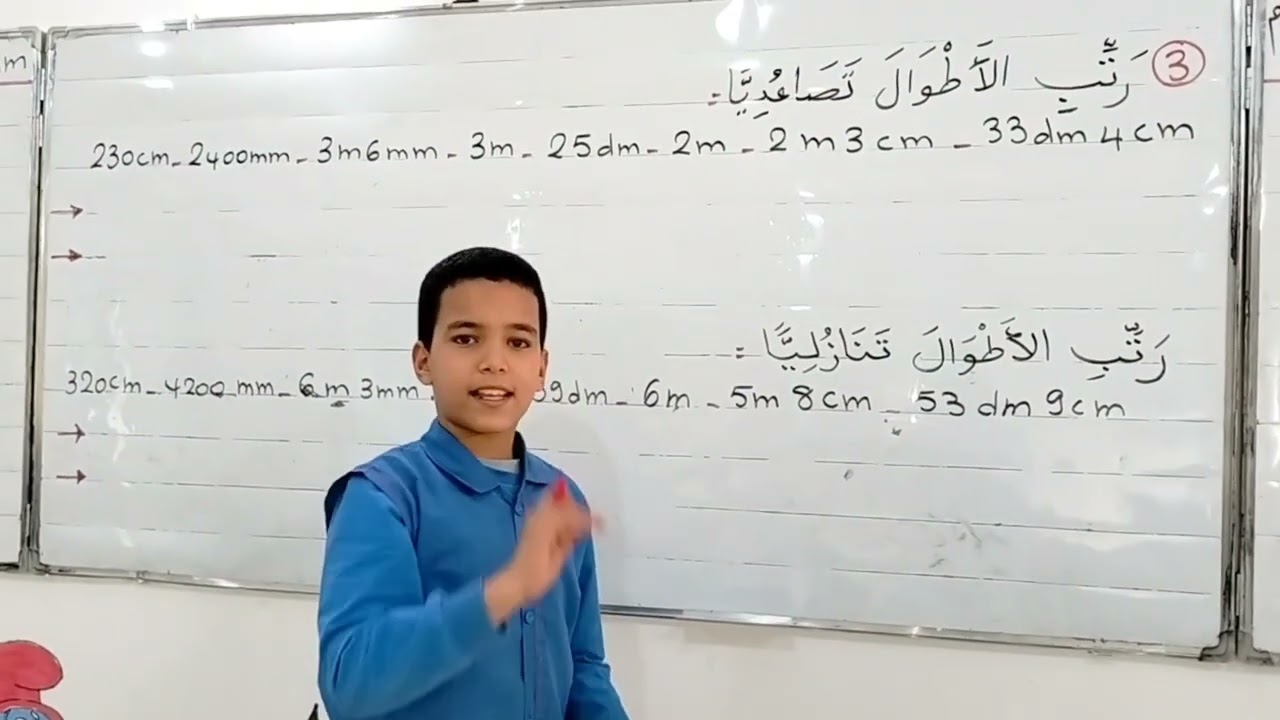 ③ رَتِّبِ الأَطْوَالَ تَصَاعُدِيًّا :
230cm - 2400mm - 3m6mm - 3m - 25dm - 2m - 2m3cm - 33dm4cm
→
→
رَتِّبِ الأَطْوَالَ تَنَازُلِيًّا :
320cm - 4200mm - 6m 3mm 9dm - 6m - 5m 8cm - 53dm 9cm
→
→
m